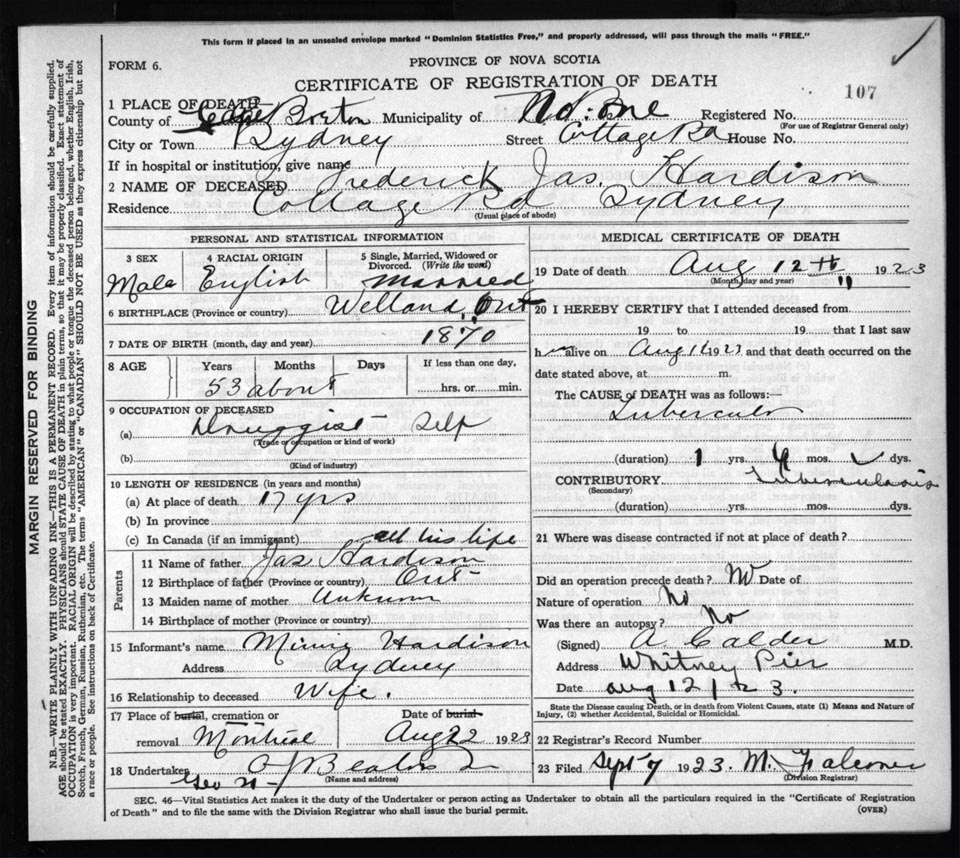 This form if placed in an unsealed envelope marked "Dominion Statistics Free," and properly addressed, will pass through the mails "FREE."
FORM 6.
PROVINCE OF NOVA SCOTIA
CERTIFICATE OF REGISTRATION OF DEATH
107
1 PLACE OF DEATH—
County of Cape Breton Municipality of Registered No.
(For use of Registrar General only)
City or Town Sydney Street Cottage Rd House No.
If in hospital or institution, give name
2 NAME OF DECEASED Frederick Jas. Hardison
Residence Cottage Rd Sydney
(Usual place of abode)
PERSONAL AND STATISTICAL INFORMATION
3 SEX
Male
4 RACIAL ORIGIN
English
5 Single, Married, Widowed or Divorced. (Write the word)
Married
6 BIRTHPLACE (Province or country) Welland, Ont
7 DATE OF BIRTH (month, day and year) 1870
8 AGE Years Months Days If less than one day,
53 about hrs. or min.
9 OCCUPATION OF DECEASED
(a) Druggist Self
(Trade or occupation or kind of work)
(b)
(Kind of industry)
10 LENGTH OF RESIDENCE (in years and months)
(a) At place of death 17 yrs
(b) In province
(c) In Canada (if an immigrant) all his life
Parents
11 Name of father Jas Hardison
12 Birthplace of father (Province or country) Ont
13 Maiden name of mother
14 Birthplace of mother (Province or country)
15 Informant's name Hardison
Address Sydney
16 Relationship to deceased Wife.
17 Place of burial, cremation or Date of burial
removal Montreal Aug 22 1923
18 Undertaker
(Name and address)
MEDICAL CERTIFICATE OF DEATH
19 Date of death Aug 12th 1923
(Month, day and year)
20 I HEREBY CERTIFY that I attended deceased from
19 to 19 that I last saw
h alive on Aug 1923 and that death occurred on the
date stated above, at m.
The CAUSE OF DEATH was as follows:—
Tubercular
(duration) 1 yrs. mos. dys.
CONTRIBUTORY Tuberculosis
(Secondary)
(duration) yrs. mos. dys.
21 Where was disease contracted if not at place of death?
Did an operation precede death? No Date of
Nature of operation No
Was there an autopsy? No
(Signed) A Calder M.D.
Address Whitney Pier
Date Aug 12 / 23.
State the Disease causing Death, or in death from Violent Causes, state (1) Means and Nature of Injury, (2) whether Accidental, Suicidal or Homicidal.
22 Registrar's Record Number
23 Filed Sept 7 1923. M. Falconer
(Division Registrar)
SEC. 46—Vital Statistics Act makes it the duty of the Undertaker or person acting as Undertaker to obtain all the particulars required in the "Certificate of Registration
of Death" and to file the same with the Division Registrar who shall issue the burial permit.
(OVER)
MARGIN RESERVED FOR BINDING
N.B.—WRITE PLAINLY WITH UNFADING INK—THIS IS A PERMANENT RECORD. Every item of information should be carefully supplied.
AGE should be stated EXACTLY. PHYSICIANS should STATE CAUSE OF DEATH in plain terms, so that it may be properly classified. Exact statement of
OCCUPATION is very important. RACIAL ORIGIN will be described by stating to what people or tongue the deceased person belonged, whether English, Irish,
Scotch, French, German, Russian, Ruthenian, etc. The terms "AMERICAN" or "CANADIAN" SHOULD NOT BE USED as they express citizenship but not
a race or people. See instructions on back of Certificate.